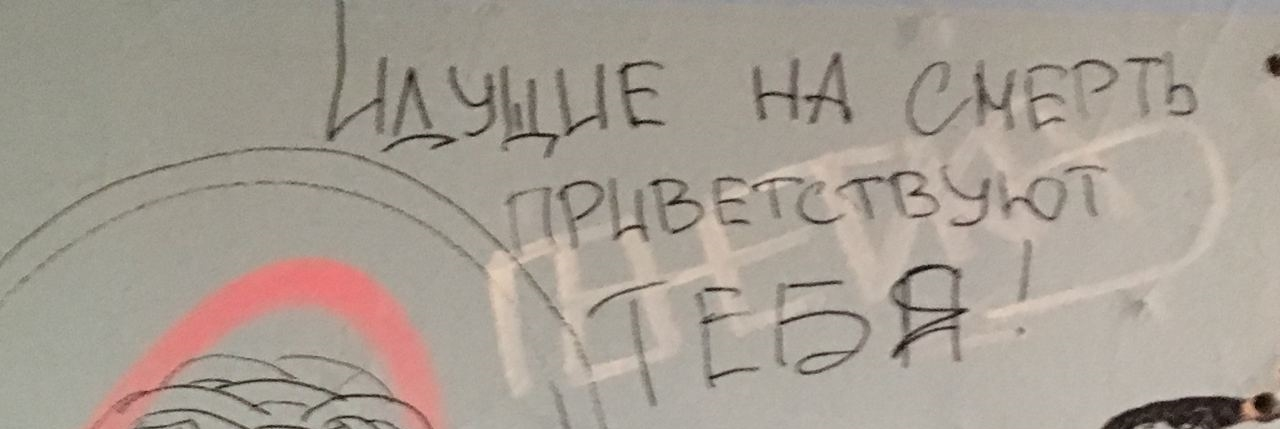 ИДУЩИЕ НА СМЕРТЬ
ПРИВЕТСТВУЮТ
ТЕБЯ!